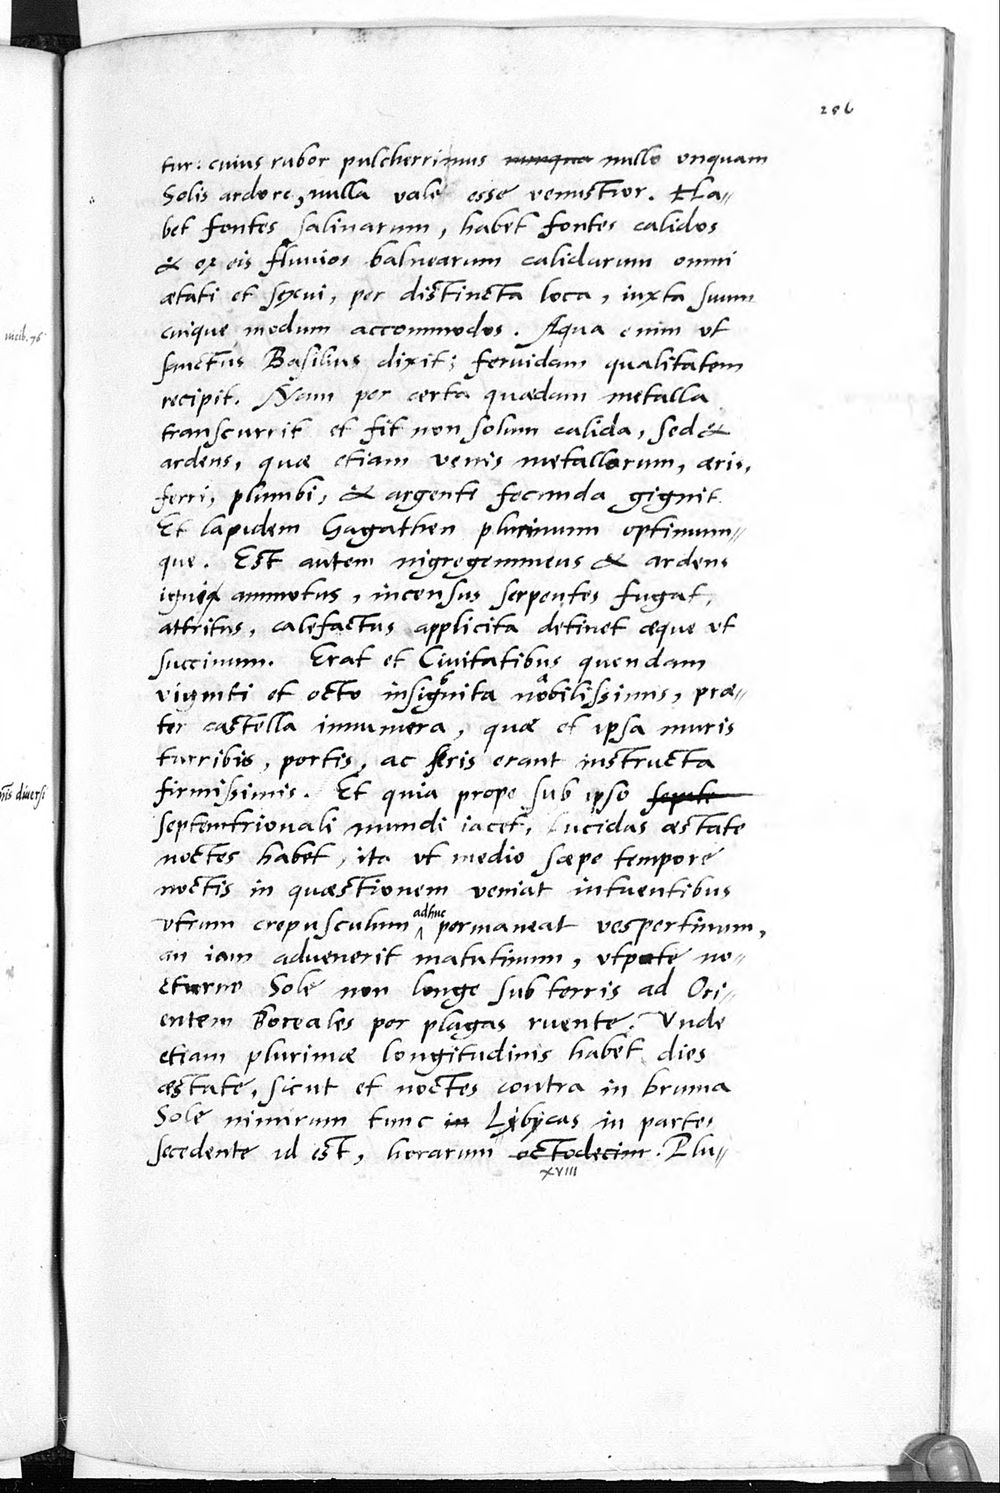 206
tur: cuius rubor pulcherrimus nunqua nullo unquam
Solis ardore, nulla vale esse venustior. Ha=
bet fontes salinarum, habet fontes calidos
& ex eis fluvios balnearum calidarum omni
ætati et sexui, per distincta loca, iuxta suum
cuique modum accommodos. Aqua enim ut
sanctus Basilius dixit; fervidam qualitatem
recipit. Nam per certa quædam metalla
transcurrit et fit non solum calida, sed &
ardens, quæ etiam venis metallorum, æris,
ferri, plumbi, & argenti fecunda gignit.
Et lapidem Gagathen plurimum optimum=
que. Est autem nigrogemmeus & ardens
igni ammotus, incensus serpentes fugat,
attritus, calefactus applicita detinet æque ut
succinum. Erat et Civitatibus quondam
viginti et octo insignita nobilissimis, præ=
ter castella innumera, quæ et ipsa muris
turribis, portis, ac seris erant instructa
firmissimis. Et quia prope sub ipso septe
septemtrionali mundi iacet, lucidas æstate
noctes habet, ita ut medio sæpe tempore
noctis in quæstionem veniat intuentibus
utrum crepusculum adhuc permaneat vespertinum,
an iam advenerit matutinum, utpote no=
cturno Sole non longe sub terris ad Ori=
entem Boreales per plagas ruente. Unde
etiam plurimæ longitudinis habet dies
æstate, sicut et noctes contra in bruma
Sole nimirum tunc in Lybycas in partes
secedente id est, horarum octodecim. Plu=
xviii
nis diversi